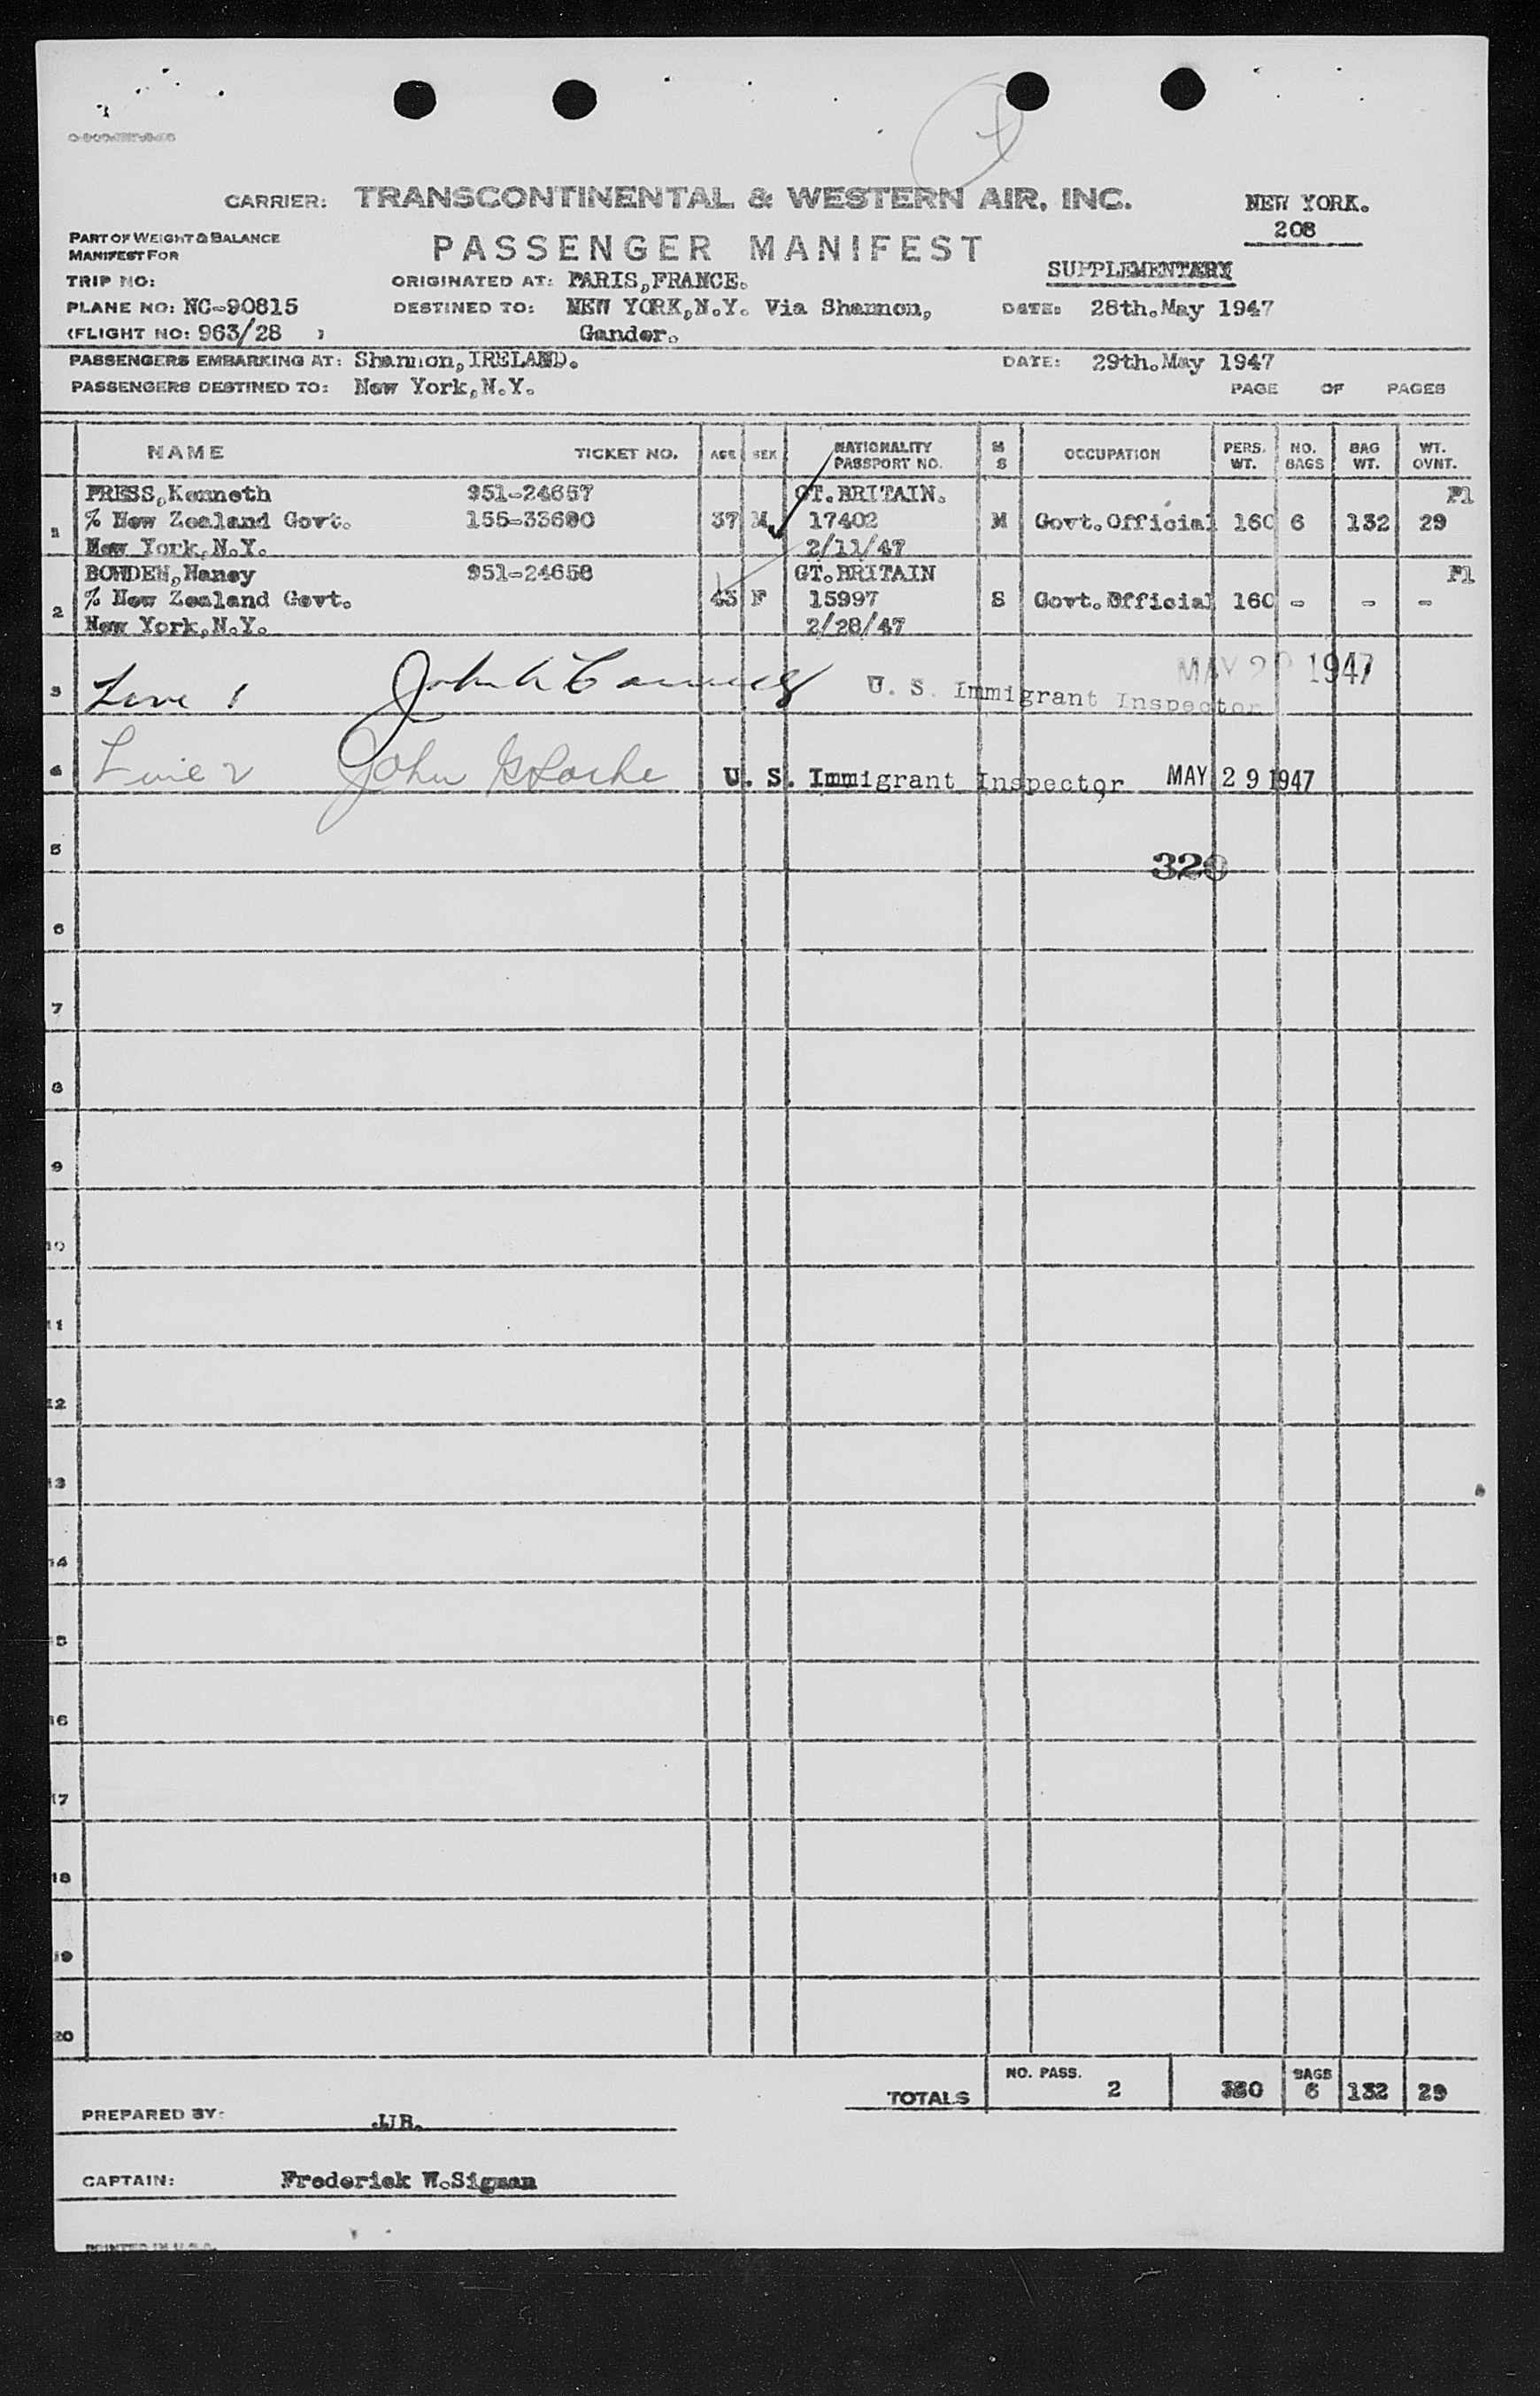 CARRIER: TRANSCONTINENTAL & WESTERN AIR, INC.
NEW YORK.
208
PART OF WEIGHT & BALANCE
MANIFEST FOR
PASSENGER MANIFEST
SUPPLEMENTARY
TRIP NO:
ORIGINATED AT: PARIS,FRANCE.
PLANE NO: NC-90815
DESTINED TO: NEW YORK,N.Y. Via Shannon,
DATE: 28th.May 1947
(FLIGHT NO: 963/28 )
Gander.
PASSENGERS EMBARKING AT: Shannon,IRELAND.
DATE: 29th.May 1947
PASSENGERS DESTINED TO: New York,N.Y.
PAGE OF PAGES
NAME TICKET NO. AGE SEX NATIONALITY PASSPORT NO. M S OCCUPATION PERS. WT. NO. BAGS BAG WT. WT. OVNT.
PRESS,Kenneth 951-24657 GT.BRITAIN. Fl
1 % New Zealand Govt. 155-33690 37 M 17402 M Govt.Official 160 6 132 29
New York,N.Y. 2/11/47
BOWDEN,Nancy 951-24658 GT.BRITAIN Fl
2 % New Zealand Govt. 45 F 15997 S Govt.Official 160 - - -
New York,N.Y. 2/28/47
3 Line 1 John U. S. Immigrant Inspector MAY 29 1947
4 Line 2 John U. S. Immigrant Inspector MAY 29 1947
5
329
6
7
8
9
10
11
12
13
14
15
16
17
18
19
20
TOTALS NO. PASS. 2 320 BAGS 6 132 29
PREPARED BY: JJB.
CAPTAIN: Frederick W.Sigman
PRINTED IN U.S.A.